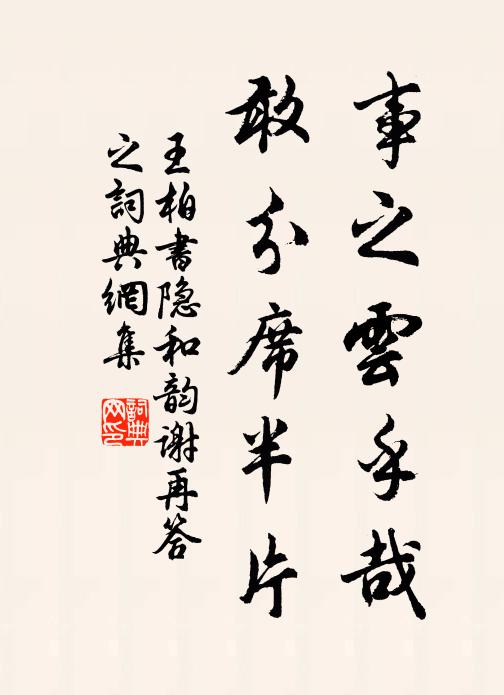 事之雲乎哉
敢分席半片
王柏書隐和韵谢再答
之詞典網集
詞典
网印